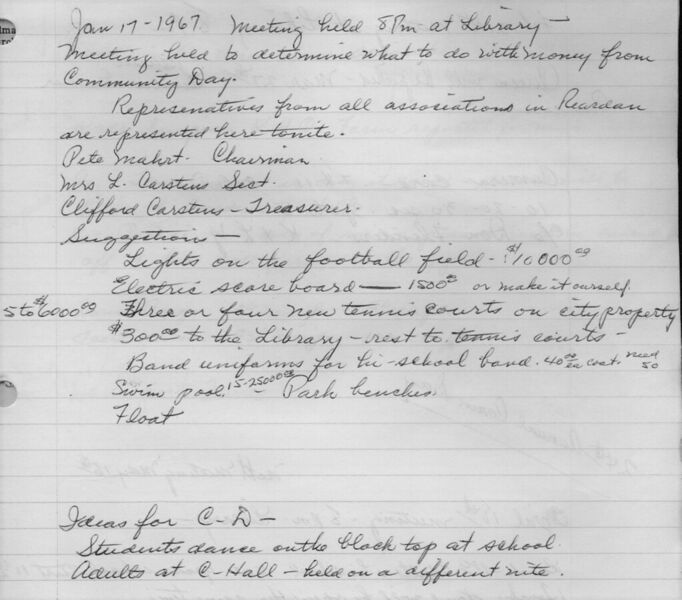 Jan 17-1967 Meeting held 8 Pm at Library-
Meeting held to determine what to do with money from
Community Day.
Represenatives from all associations in Reardan
are represented here tonite.
Pete Mahrt. Chairman
Mrs L. Carstens Sect.
Clifford Carstens - Treasurer.
Suggestions -
Lights on the football field - $10000 00
Electric score board - 1500 00 or make it ourself.
5 to $6000 00 Three or four new tennis courts on city property
$300 00 to the Library - rest to tennis courts -
Band uniforms for hi-school band. 40 00 ea coat. need 50
Swim pool. 15-25000 00 - Park benches
Float
Ideas for C-D -
Students dance on the black top at school.
Adults at C-Hall - held on a different nite.